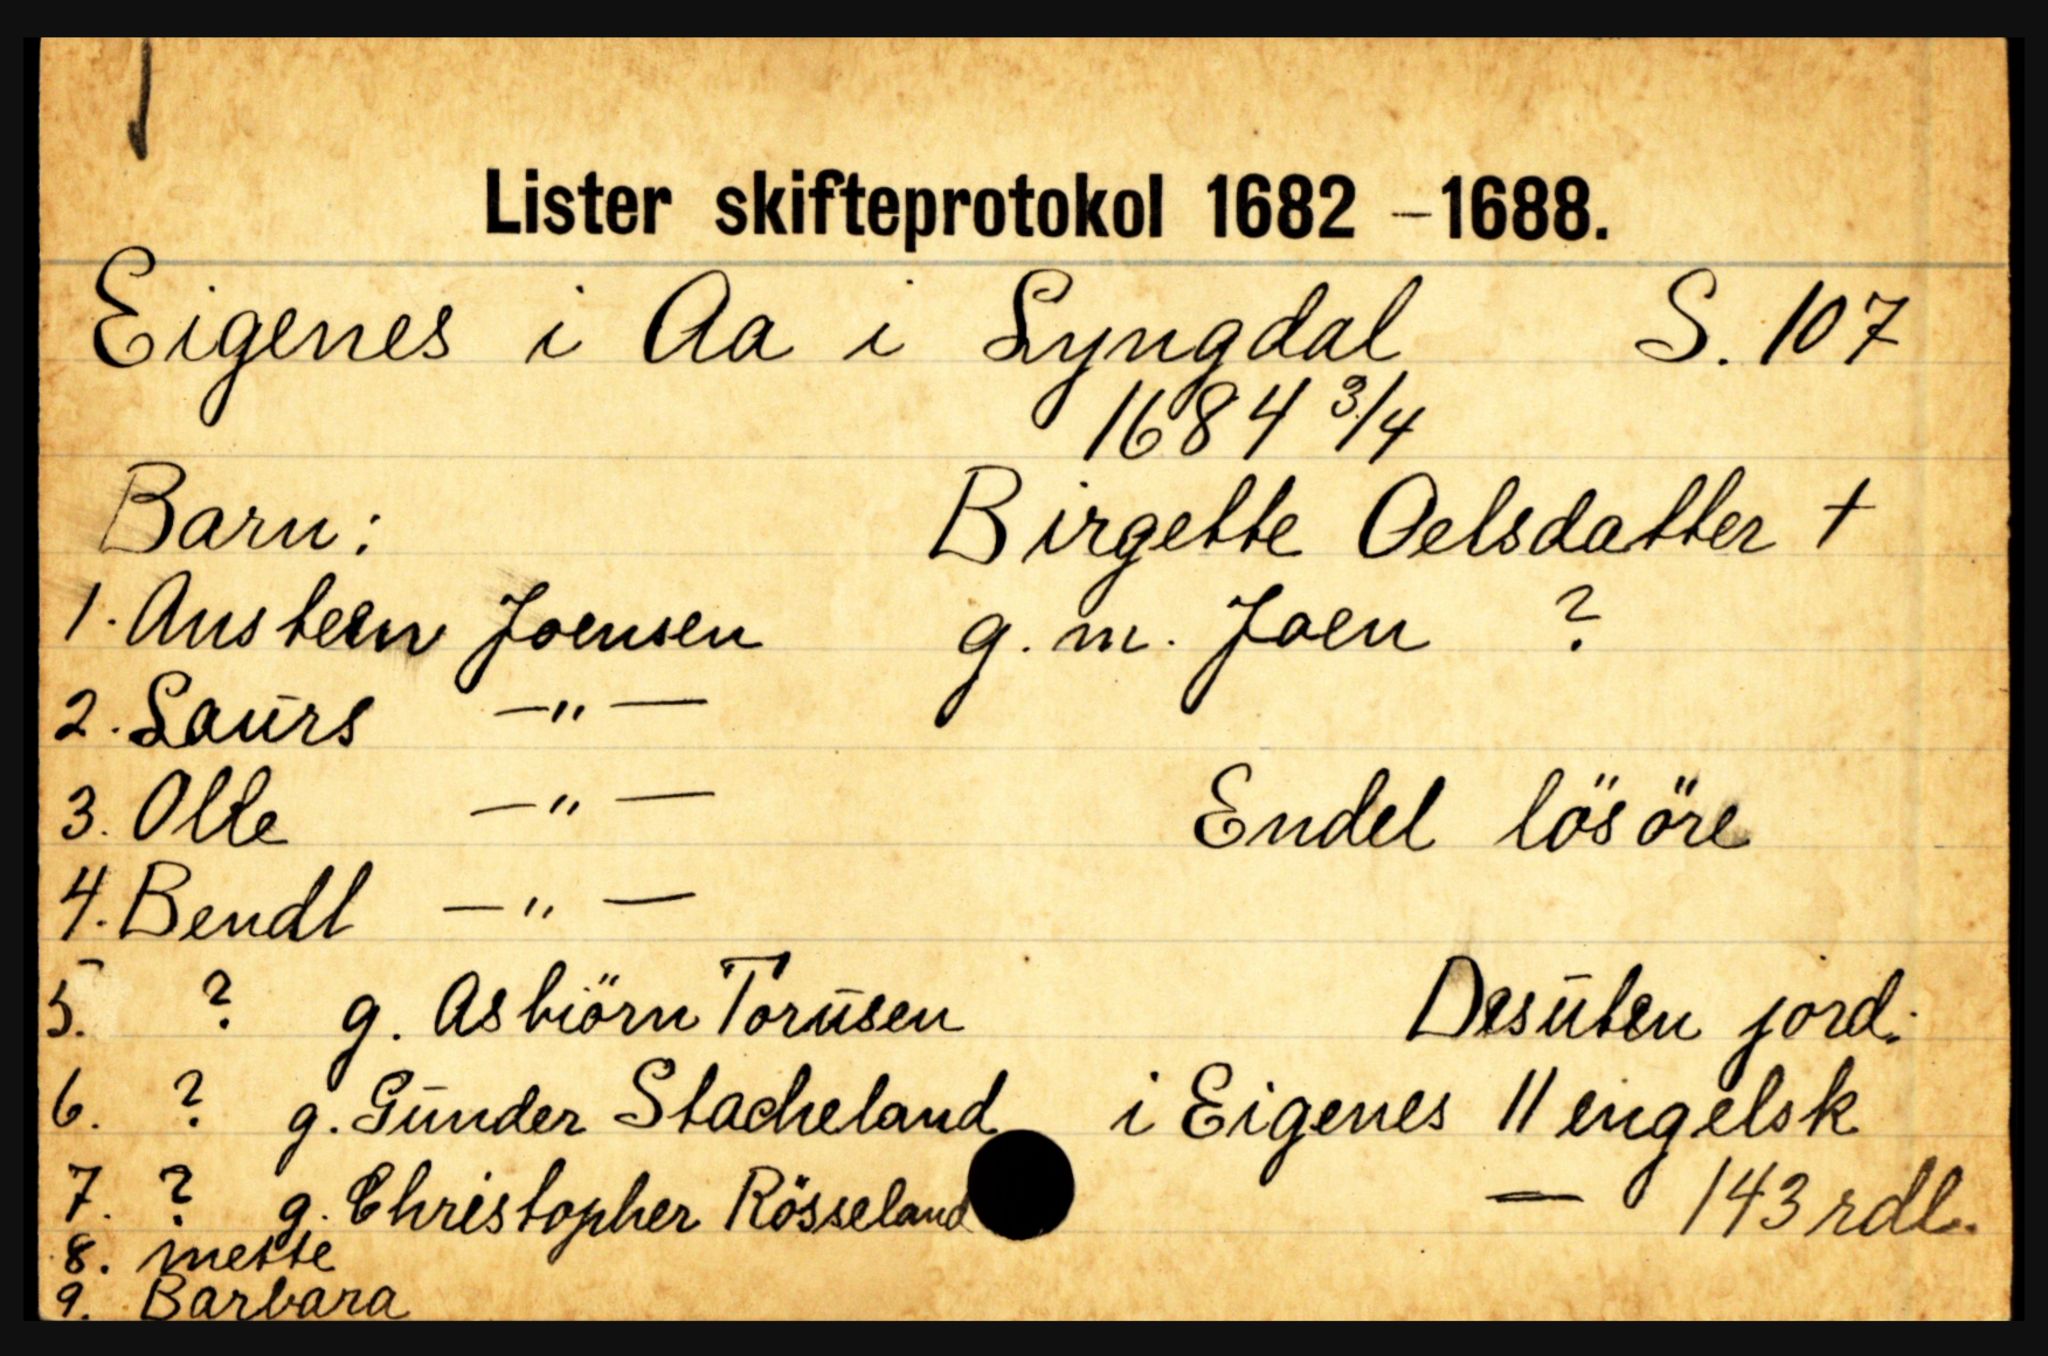 Lister skifteprotokol 1682 – 1688.
Eigenes i Aa i Lyngdal S. 107
1684 3/4
Barn: Birgette Oelsdatter +
1. Austeen Joensen g. m. Joen ?
2. Laurs —"—
3. Olle —"— Endel lösöre
4. Bendt —"—
5. ? g. Asbiörn Torusen Desuten jord:
6. ? g. Gunder Stacheland i Eigenes 11 engelsk
7. ? g. Christopher Rösseland — 143 rdl.
8. mette
9. Barbara